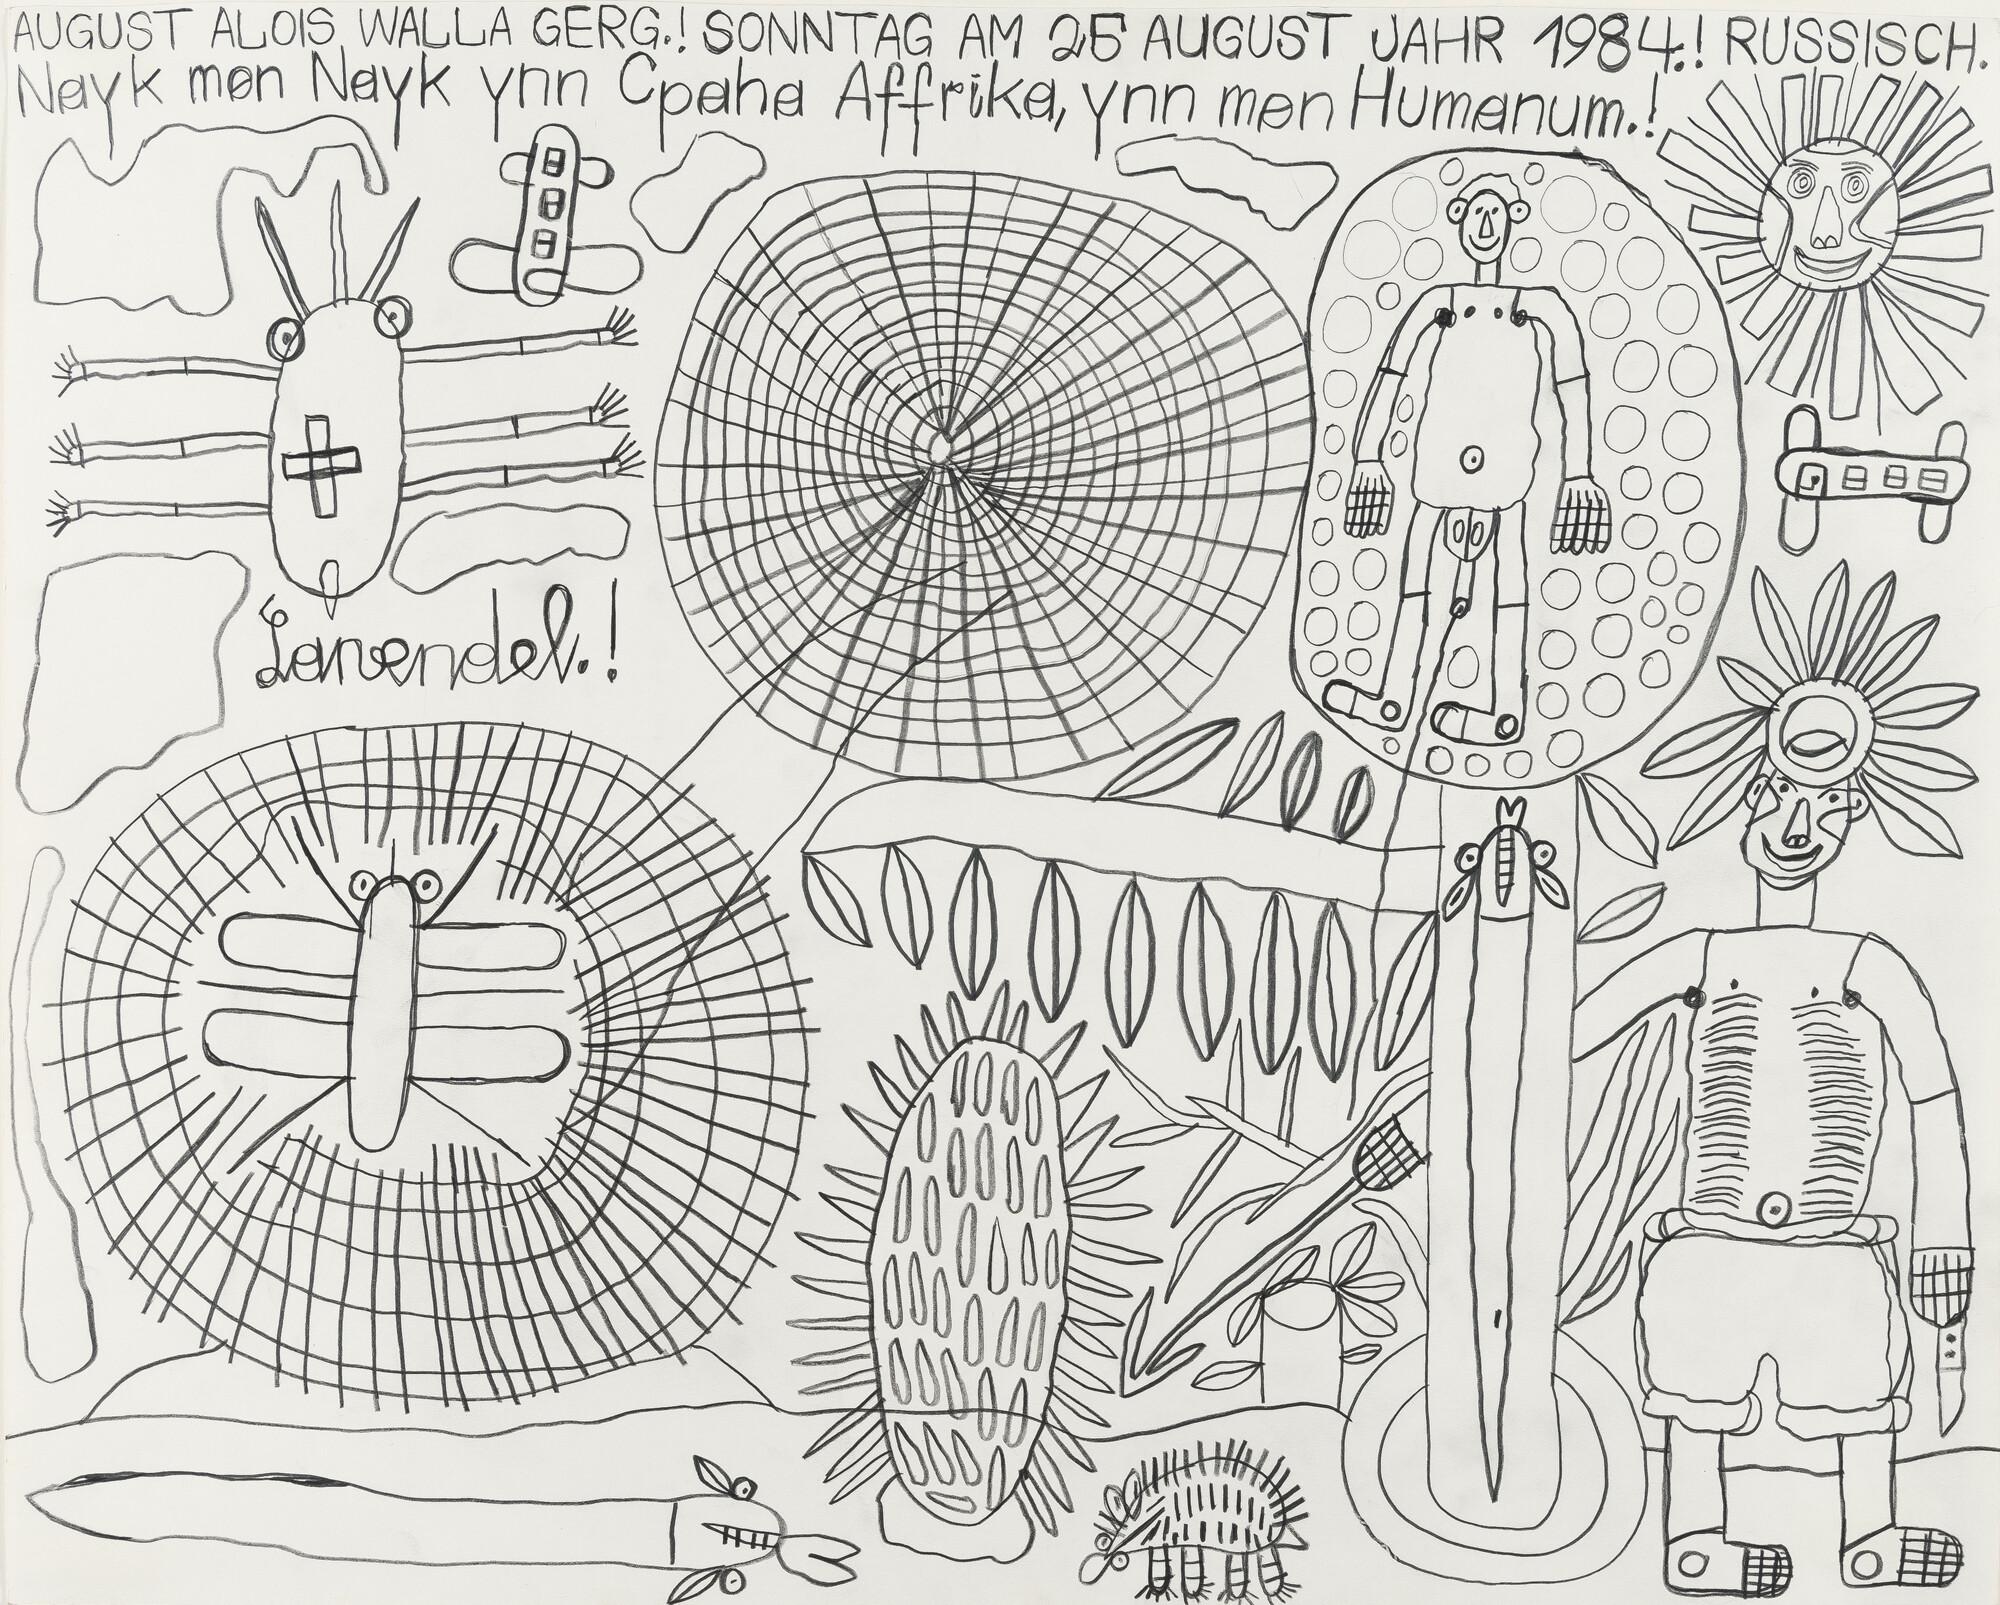 AUGUST ALOIS WALLA GERG.! SONNTAG AM 25 AUGUST JAHR 1984.! RUSSISCH.
Nayk mon Nayk ynn Cpaha Affrika, ynn mon Humanum.!
Lavendel.!